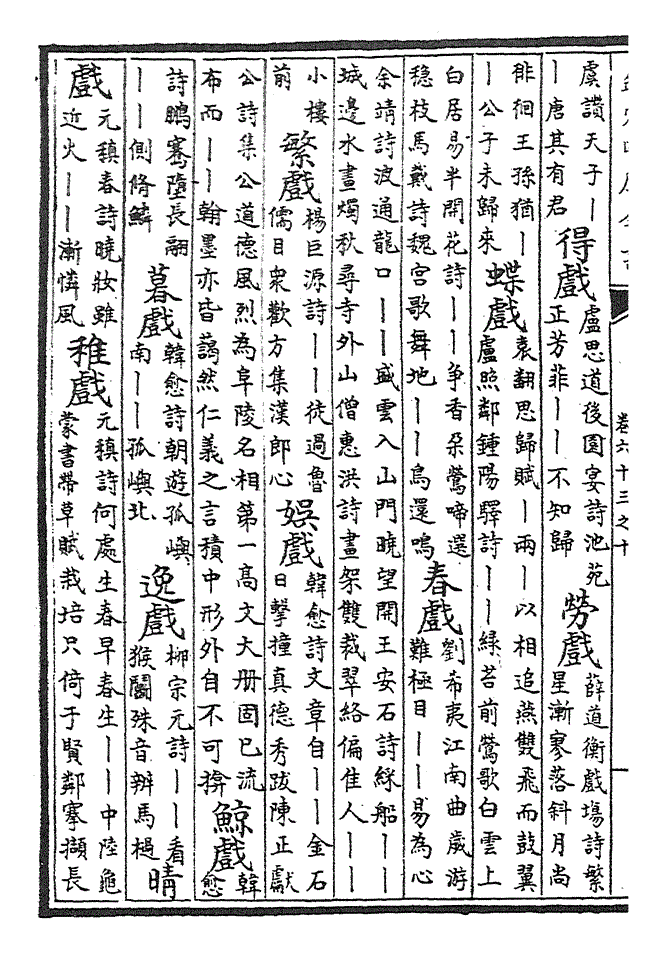 卷六十三之十
虞讚天子丨
丨唐其有君
得戲
盧思道後園宴詩池苑
正芳菲丨丨不知歸
勞戲
薛道衡戲場詩繁
星漸寥落斜月尚
徘徊王孫猶丨
丨公子未歸來
蝶戲
袁翻思歸賦丨兩丨以相追燕雙飛而鼓翼
盧照鄰鍾陽驛詩丨丨綠苔前鶯歌白雲上
白居易半開花詩丨丨爭香朵鶯啼選
穩枝馬戴詩魏宮歌舞地丨丨鳥還鳴
春戲
劉希夷江南曲歲游
難極目丨丨易為心
余靖詩波通龍口丨丨盛雲入山門曉望開王安石詩綵船丨丨
城邊水畫燭秋尋寺外山僧惠洪詩畫架雙裁翠絡偏佳人丨丨
小樓
前
繁戲
楊巨源詩丨丨徒過魯
儒目衆歡方集漢郎心
娛戲
韓愈詩文章自丨丨金石
日擊撞真德秀跋陳正獻
公詩集公道德風烈為阜陵名相第一高文大册固已流
布而丨丨翰墨亦皆藹然仁義之言積中形外自不可揜
鯨戲
韓
愈
詩鵬騫墮長翮
丨丨側脩鱗
暮戲
韓愈詩朝遊孤嶼
南丨丨孤嶼北
逸戲
柳宗元詩丨丨看
猴鬭殊音辨馬檛
晴
戲
元稹春詩曉妝雖
近火丨丨漸憐風
稚戲
元稹詩何處生春早春生丨丨中陸龜
蒙書帶草賦栽培只倚于賢鄰搴擷長